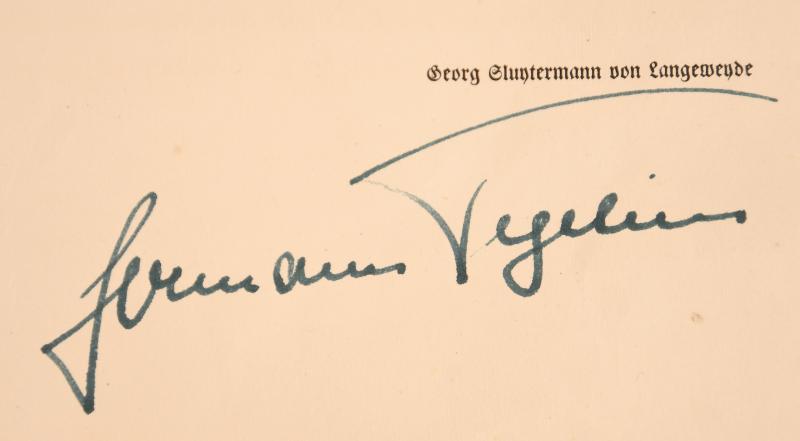 Georg Sluytermann von Langeweyde
Hermann Vegelius